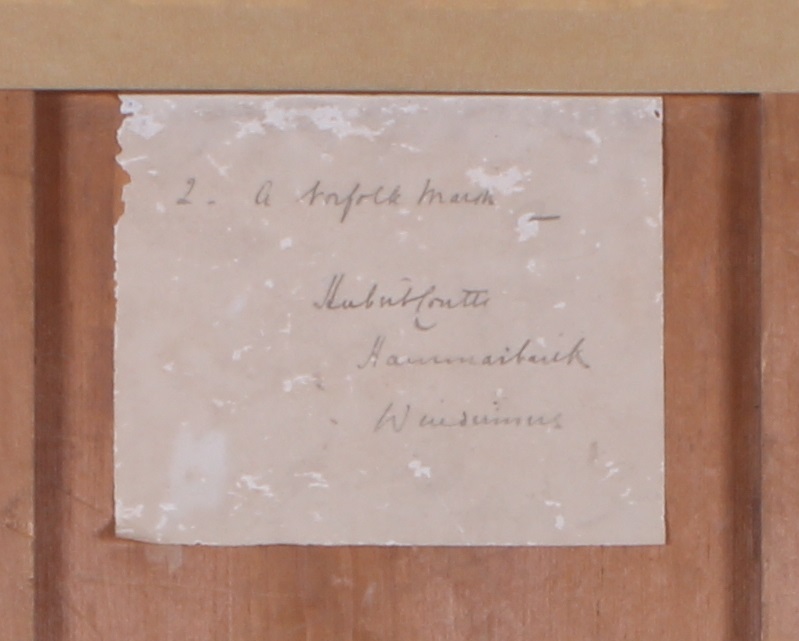 2. A Norfolk Marsh —
Hubert Coutts
Hammarbank
Windermere